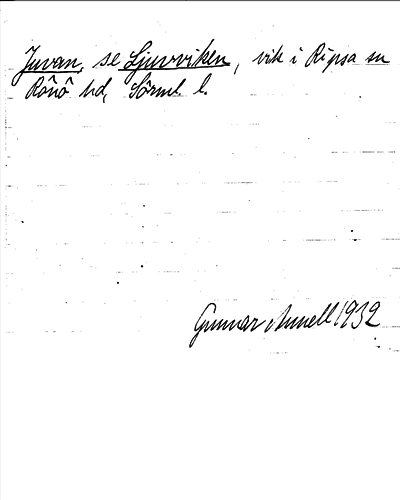 Juvan, se Ljuvviken, vik i Ripsa sn
Rönö hd, Sörml. l.
Gunnar Annell 1932